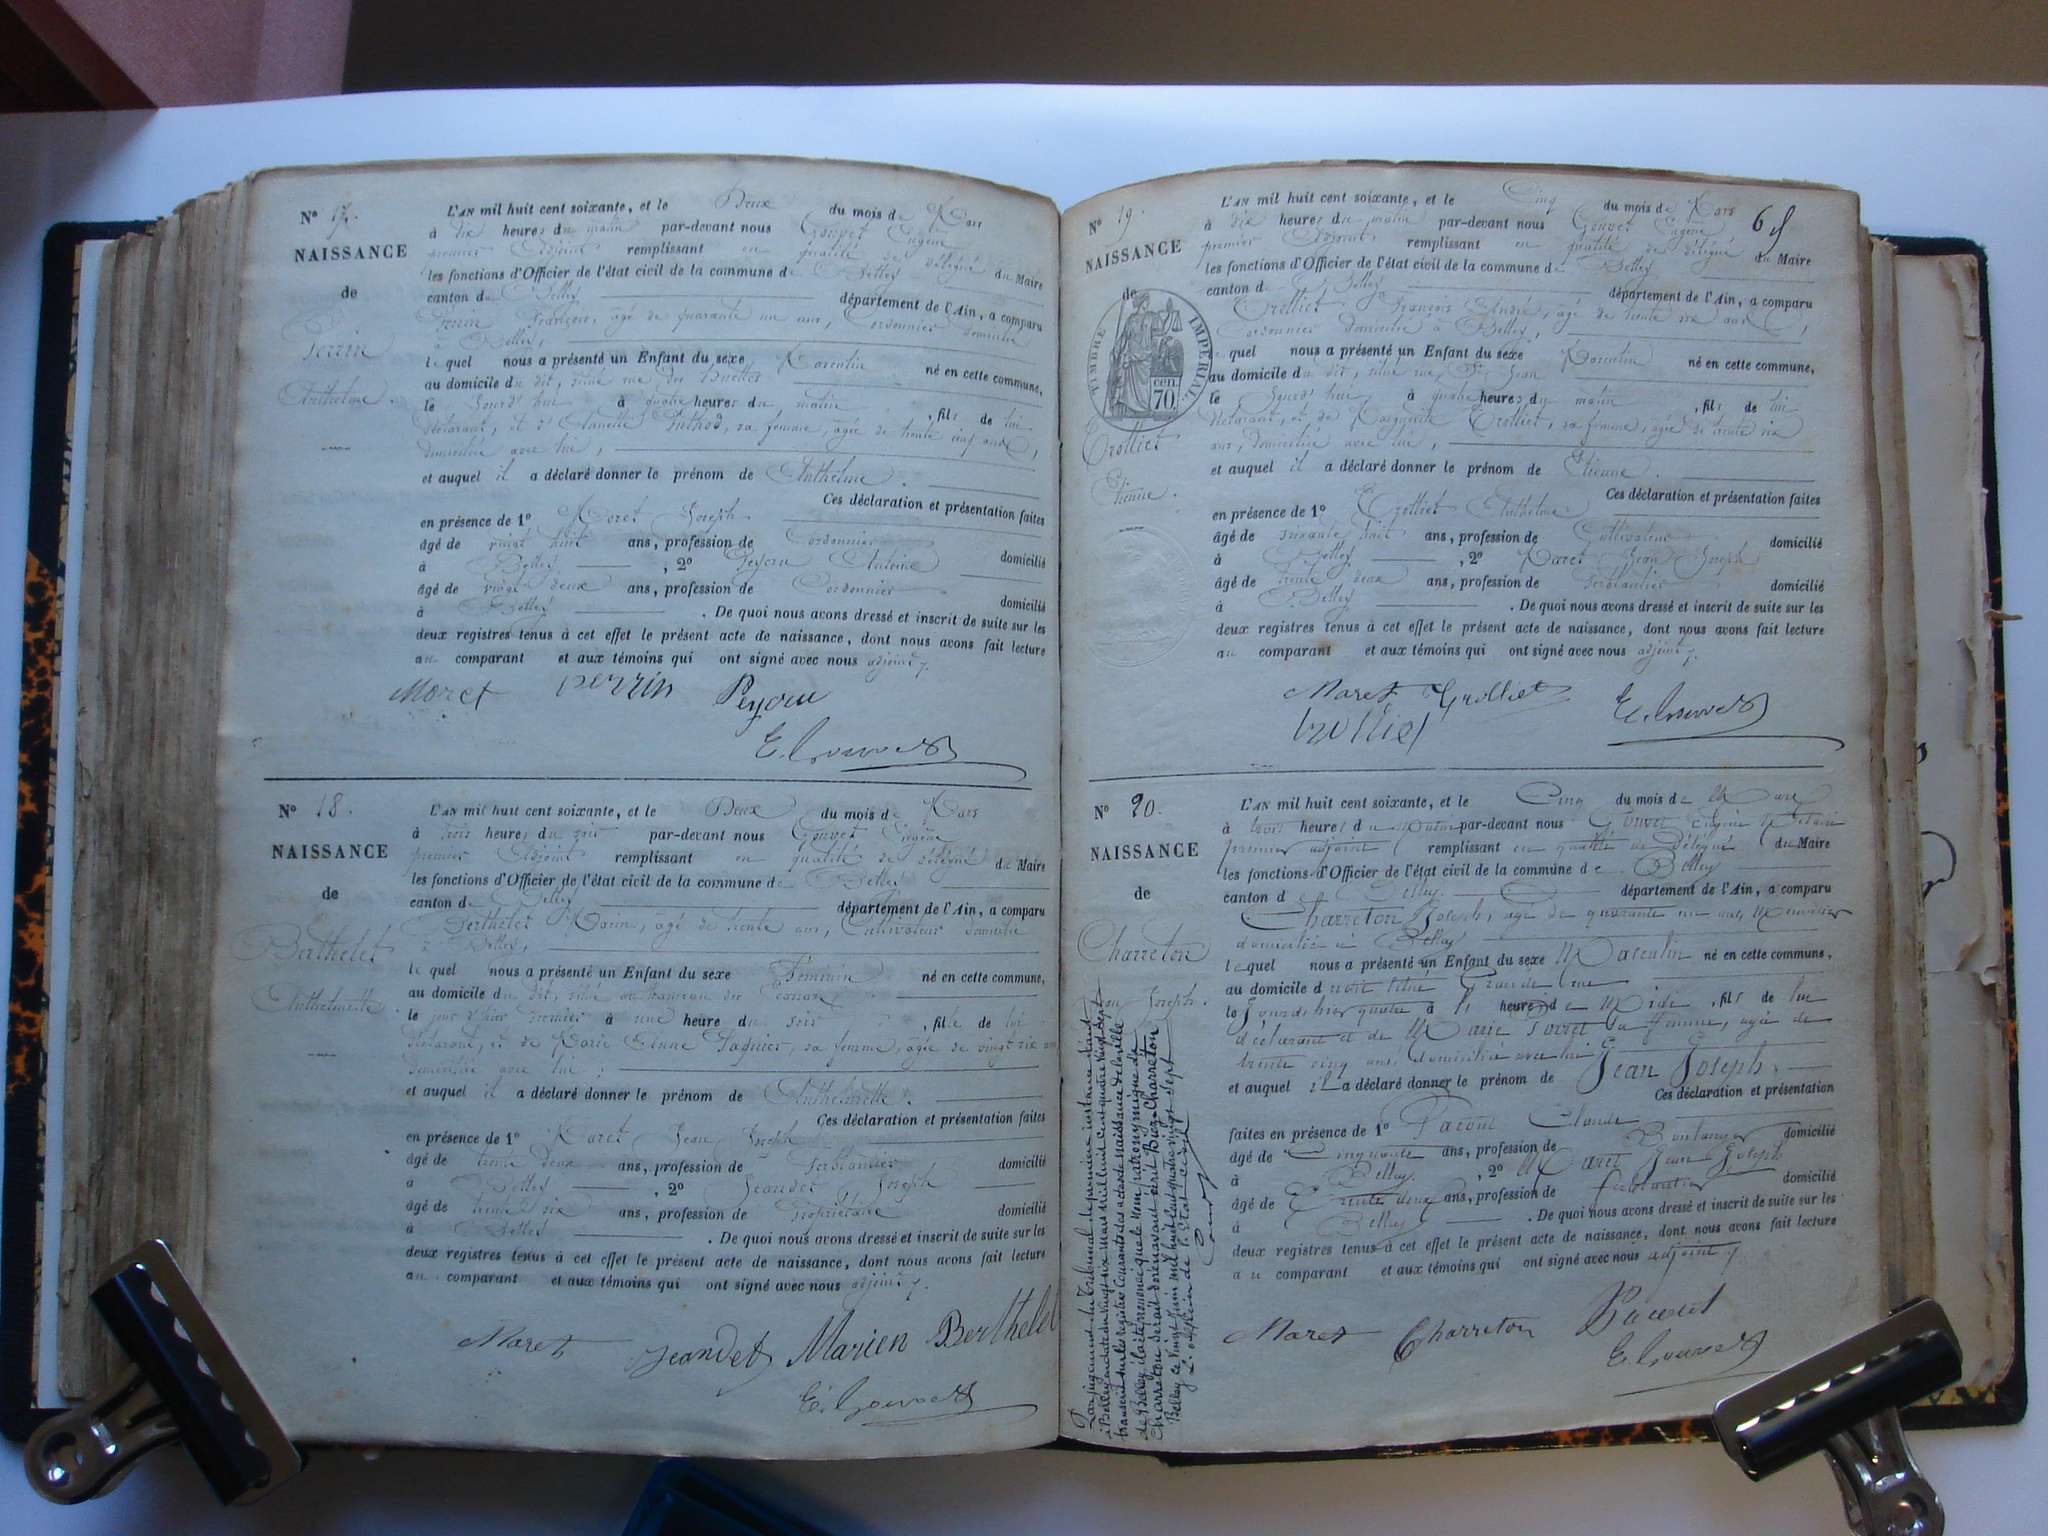 N° 17.
NAISSANCE
de
Perrin
Anthelme.
L'AN mil huit cent soixante, et le Deux du mois de Mars
à dix heures du matin par-devant nous Gouvet Eugène
premier Adjoint remplissant en qualité de délégué du Maire
les fonctions d'Officier de l'état civil de la commune de Belley
canton de Belley département de l'Ain, a comparu
Perrin François, âgé de quarante un ans, Cordonnier domicilié
à Belley,
lequel nous a présenté un Enfant du sexe Masculin né en cette commune,
au domicile du dit, situé rue des
le jourd'hui à quatre heures du matin, fils de lui
déclarant, et d' Puthod, sa femme, âgée de trente cinq ans,
domiciliée avec lui,
et auquel il a déclaré donner le prénom de Anthelme.
Ces déclaration et présentation faites
en présence de 1° Moret Joseph
âgé de vingt huit ans, profession de Cordonnier domicilié
à Belley, 2° Peycru Antoine
âgé de vingt deux ans, profession de Cordonnier domicilié
à Belley. De quoi nous avons dressé et inscrit de suite sur les
deux registres tenus à cet effet le présent acte de naissance, dont nous avons fait lecture
au comparant et aux témoins qui ont signé avec nous adjoint
Moret perrin Peycru
E. Gouvet
N° 18.
NAISSANCE
de
Berthelet
Anthelmette
L'AN mil huit cent soixante, et le Deux du mois de Mars
à trois heures du soir par-devant nous Gouvet Eugène
premier Adjoint remplissant en qualité de délégué du Maire
les fonctions d'Officier de l'état civil de la commune de Belley
canton de Belley département de l'Ain, a comparu
Berthelet Marin, âgé de trente ans, Cultivateur domicilié
à Belley,
lequel nous a présenté un Enfant du sexe Féminin né en cette commune,
au domicile du dit, situé au hameau des
le jour d'hier premier à une heure du soir, fille de lui
déclarant, et de Marie Anne sa femme, âgée de vingt six ans
domiciliée avec lui,
et auquel il a déclaré donner le prénom de Anthelmette.
Ces déclaration et présentation faites
en présence de 1° Maret Jean Joseph
âgé de trente deux ans, profession de Ferblantier domicilié
à Belley, 2° Jeandet Joseph
âgé de trente six ans, profession de Propriétaire domicilié
à Belley. De quoi nous avons dressé et inscrit de suite sur les
deux registres tenus à cet effet le présent acte de naissance, dont nous avons fait lecture
au comparant et aux témoins qui ont signé avec nous adjoint
Maret Jeandet Marien Berthelet
E. Gouvet
N° 19.
NAISSANCE
de
TIMBRE IMPÉRIAL
70 cen
Trolliet
Étienne.
L'AN mil huit cent soixante, et le Cinq du mois de Mars
à dix heures du matin par-devant nous Gouvet Eugène
premier Adjoint remplissant en qualité de délégué du Maire
les fonctions d'Officier de l'état civil de la commune de Belley
canton de Belley département de l'Ain, a comparu
Trolliet François André, âgé de trente six ans,
Cordonnier domicilié à Belley,
lequel nous a présenté un Enfant du sexe Masculin né en cette commune,
au domicile du dit, situé rue St Jean
le jourd'hui, à quatre heures du matin, fils de lui
déclarant, et de Marguerite Trolliet, sa femme, âgée de trente six
ans, domiciliée avec lui,
et auquel il a déclaré donner le prénom de Étienne.
Ces déclaration et présentation faites
en présence de 1° Trolliet Anthelme
âgé de soixante huit ans, profession de Cultivateur domicilié
à Belley, 2° Maret Jean Joseph
âgé de trente deux ans, profession de Ferblantier domicilié
à Belley. De quoi nous avons dressé et inscrit de suite sur les
deux registres tenus à cet effet le présent acte de naissance, dont nous avons fait lecture
au comparant et aux témoins qui ont signé avec nous adjoint
Maret Trolliet E. Gouvet
trolliet
N° 20.
NAISSANCE
de
Charreton
Jean Joseph.
L'AN mil huit cent soixante, et le Cinq du mois de Mars
à trois heures du par-devant nous Gouvet Eugène Notaire
premier adjoint remplissant en qualité de Délégué du Maire
les fonctions d'Officier de l'état civil de la commune de Belley
canton de Belley département de l'Ain, a comparu
Charreton Joseph, âgé de quarante un ans, Menuisier
domicilié à Belley
lequel nous a présenté un Enfant du sexe Masculin né en cette commune,
au domicile situé Grande rue
le heure de Midi, fils de lui
déclarant et de Marie sa femme, agée de
trente cinq ans, domiciliée avec lui
et auquel il a déclaré donner le prénom de Jean Joseph.
Ces déclaration et présentation
faites en présence de 1° Pacout Claude
âgé de Cinquante ans, profession de Boulanger domicilié
à Belley, 2° Maret Jean Joseph
âgé de Trente deux ans, profession de ferblantier domicilié
à Belley. De quoi nous avons dressé et inscrit de suite sur les
deux registres tenus à cet effet le présent acte de naissance, dont nous avons fait lecture
au comparant et aux témoins qui ont signé avec nous adjoint
Maret Charreton Pacout
E. Gouvet
Par jugement du Tribunal de première instance séant
à Belley en date du vingt six mars mil huit cent quatre vingt sept
transcrit sur les registres courants des actes de naissance de la ville
de Belley il a été prononcé que le nom patronymique de
Charreton serait dorénavant écrit Biez-Charreton
Belley ce vingt juin mil huit cent quatre vingt sept
L'officier de l'État civil